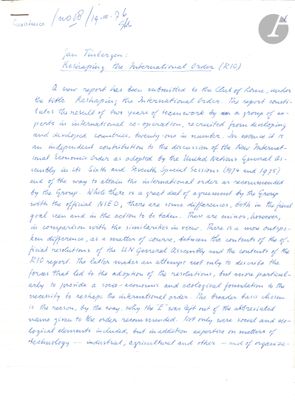 Jan Tinbergen:
Reshaping the International Order (RIO)
A new report has been submitted to the Club of Rome, under
the title Reshaping the International Order. The report consti-
tutes the result of two years of teamwork by a group of ex-
perts in international co-operation, recruited from developing
and developed countries, twenty one in number. In essence it is
an independent contribution to the discussion of the New Inter-
national Economic Order as adopted by the United Nations General As-
sembly in its Sixth and Seventh Special Sessions (1974 and 1975)
and of the way to attain the international order as recommended
by the Group. While there is a great deal of agreement by the Group
with the official NIEO, there are some differences, both in the final
goal seen and in the action to be taken. They are minor, however,
in comparison with the similarities in view. There is a more outspo-
ken difference, as a matter of course, between the contents of the of-
ficial resolutions of the UN General Assembly and the contents of the
RIO report. The latter makes an attempt not only to describe the
forces that led to the adoption of the resolutions, but more particul-
arly to provide a socio-economic and ecological foundation to the
necessity to reshape the international order. The broader basis chosen
is the reason, by the way, why the E was left out of the abbreviated
name given to the order recommended. Not only were social and eco-
logical elements included, but in addition expertise on matters of
technology — industrial, agricultural and other — and of organiza-